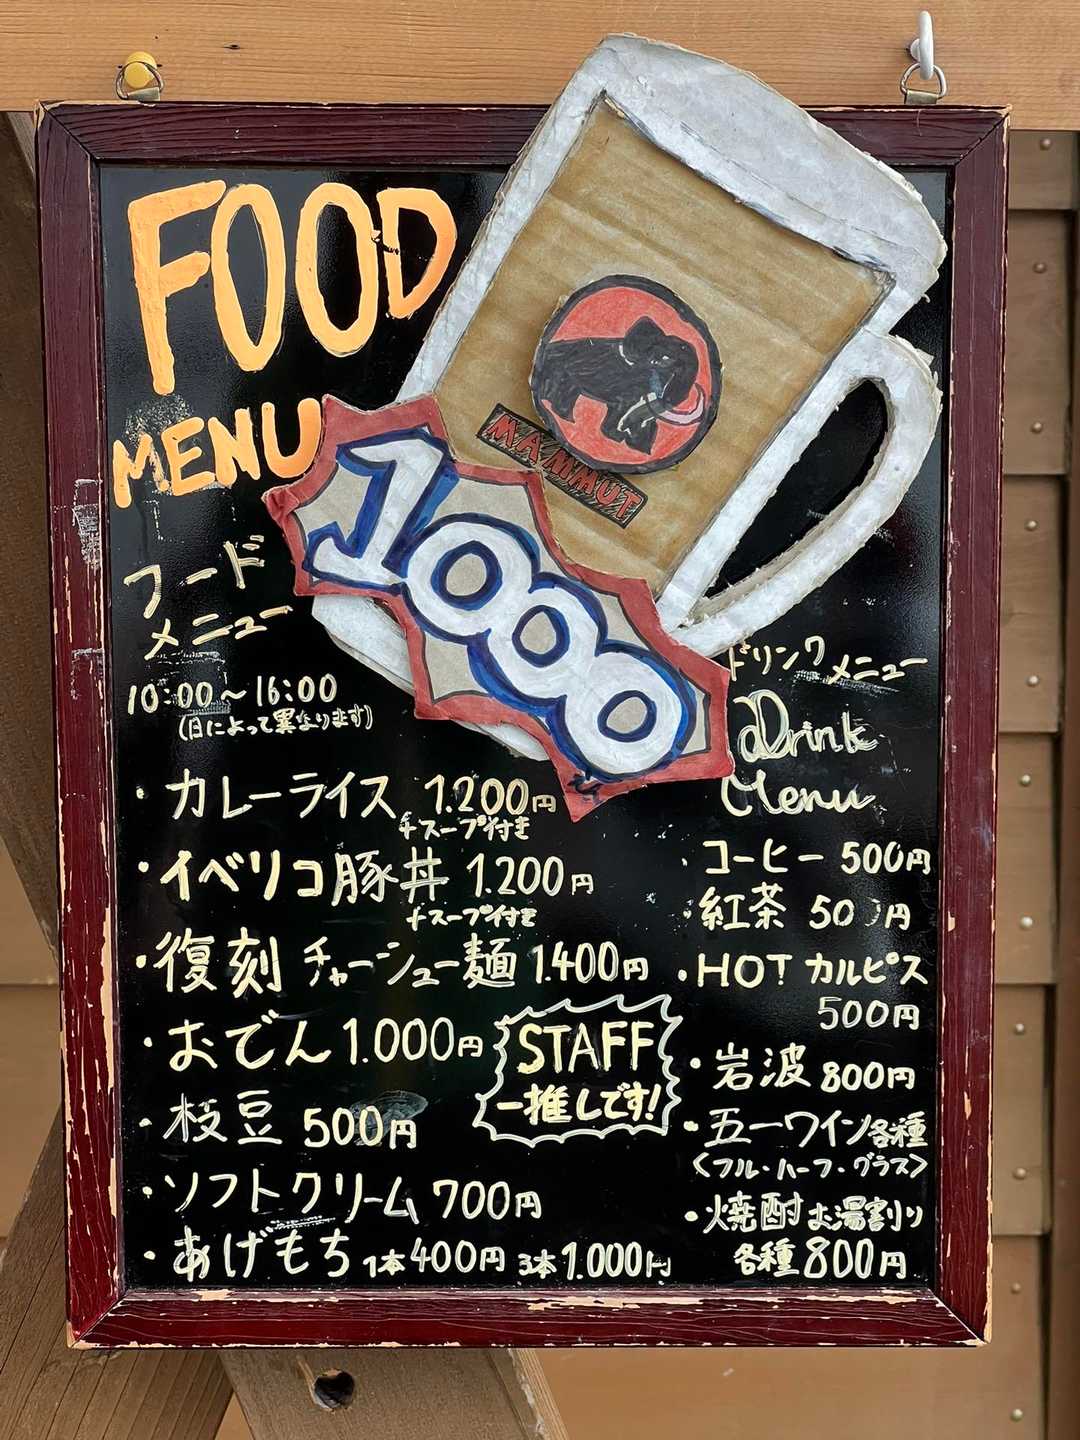 FOOD
MENU
MAMMUT
1000
フード
メニュー
10:00～16:00
(日によって異なります)
・カレーライス 1.200円
+スープ付き
・イベリコ豚丼 1.200円
+スープ付き
・復刻 チャーシュー麺 1.400円
・おでん 1.000円
STAFF
一推しです!
・枝豆 500円
・ソフトクリーム 700円
・あげもち 1本400円 3本1.000円
ドリンクメニュー
Drink
Menu
・コーヒー 500円
・紅茶 500円
・HOT カルピス
500円
・岩波 800円
・五一ワイン各種
<フル・ハーフ・グラス>
・焼酎お湯割り
各種800円